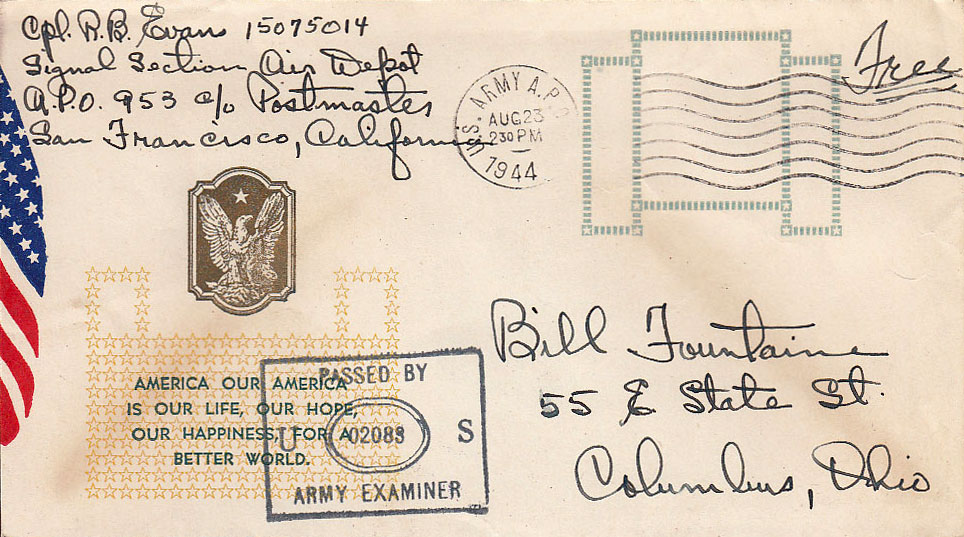 Cpl. R.B. Evans 15075014
Signal Section Air Depot
A.P.O. 953 c/o Postmaster
San Francisco, California
U.S. ARMY A.P.O.
AUG 23
2 30 PM
1944
Free
AMERICA OUR AMERICA
IS OUR LIFE, OUR HOPE,
OUR HAPPINESS, FOR A
BETTER WORLD.
PASSED BY
U 02088 S
ARMY EXAMINER
Bill Fountaine
55 E State St.
Columbus, Ohio